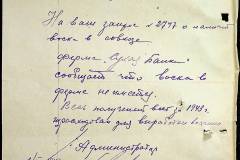 На ваш запрос № 2777 о наличии
воска в совхозе
ферма
сообщает что воска в
ферме не имеется.
Весь полученный воск за 1943 г.
израсходован для выработки вощины
Администратор